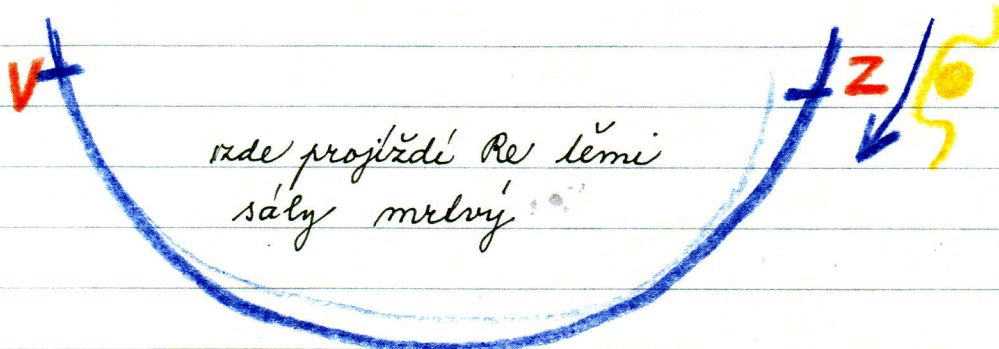 V
Z
zde projíždí Re těmi
sály mrtvý